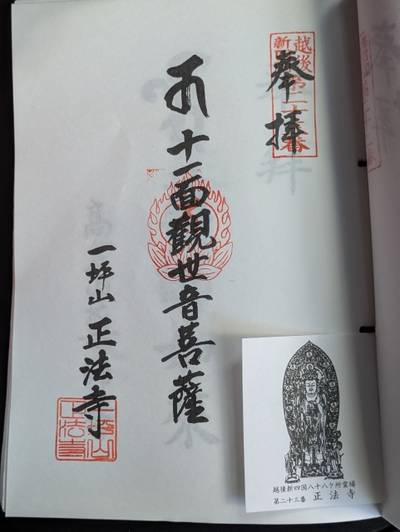 奉拝
十一面觀世音菩薩
一坪山 正法寺
越後新四国八十八ケ所霊場
第二十三番 正法寺